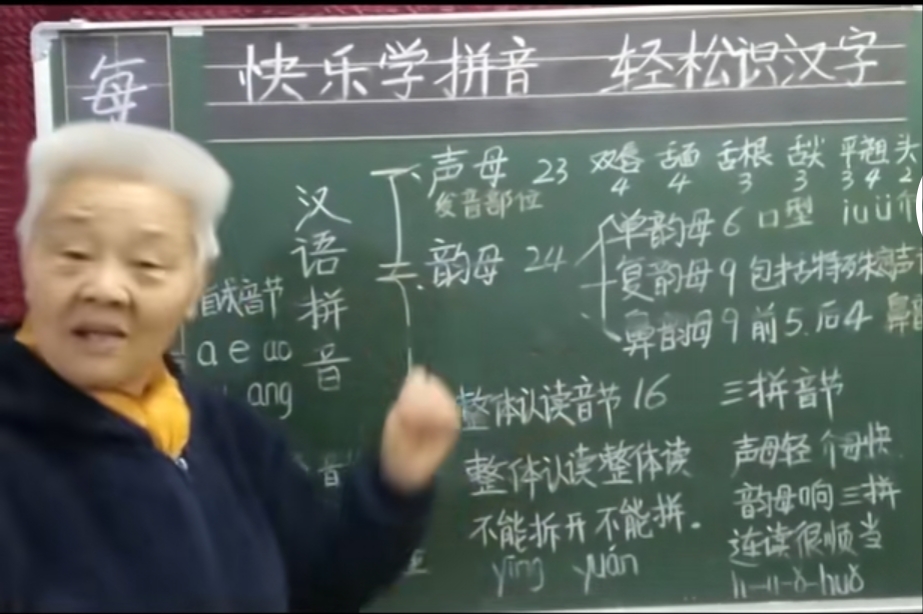 每
快乐学拼音 轻松识汉字
汉语拼音
一、声母 23 双唇 舌面 舌根 舌尖 平翘 头
4 4 3 3 3 4 2
发音部位
二、韵母 24
单韵母 6 口型 i u ü
复韵母 9 包括特殊
鼻韵母 9 前 5. 后 4 鼻
自成音节
a e ao
ang
音
整体认读音节 16
整体认读整体读
不能拆开不能拼。
yīng yuán
三拼音节
声母轻 介母快
韵母响三拼
连读很顺当